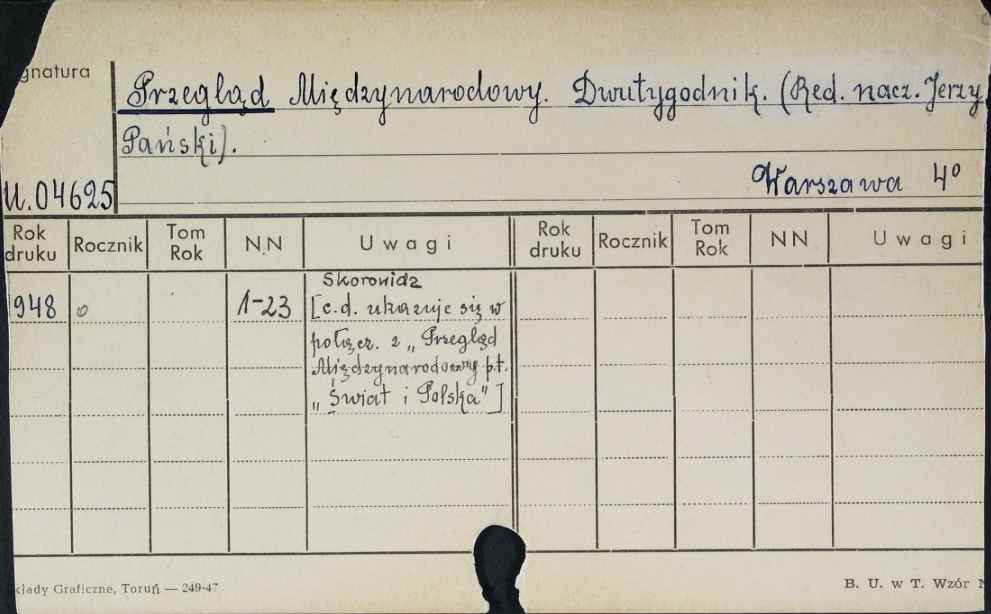 gnatura
Przegląd Międzynarodowy. Dwutygodnik. (Red. nacz. Jerzy
Pański).
U.04625
Warszawa 4º
Rok druku Rocznik Tom Rok N.N Uwagi Rok druku Rocznik Tom Rok NN Uwagi
Skorowidz
948 1-23 [c.d. ukazuje się w
połącz. z „Przegląd
Międzynarodowy p.t.
„Świat i Polska"]
kłady Graficzne, Toruń — 249-47
B. U. w T. Wzór